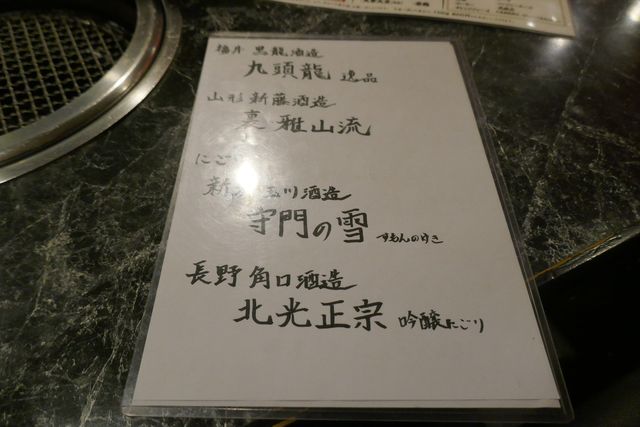 福井 黒龍酒造
九頭龍 逸品
山形 新藤酒造
裏 雅山流
にご
新 玉川酒造
守門の雪 すもんのゆき
長野 角口酒造
北光正宗 吟醸にごり